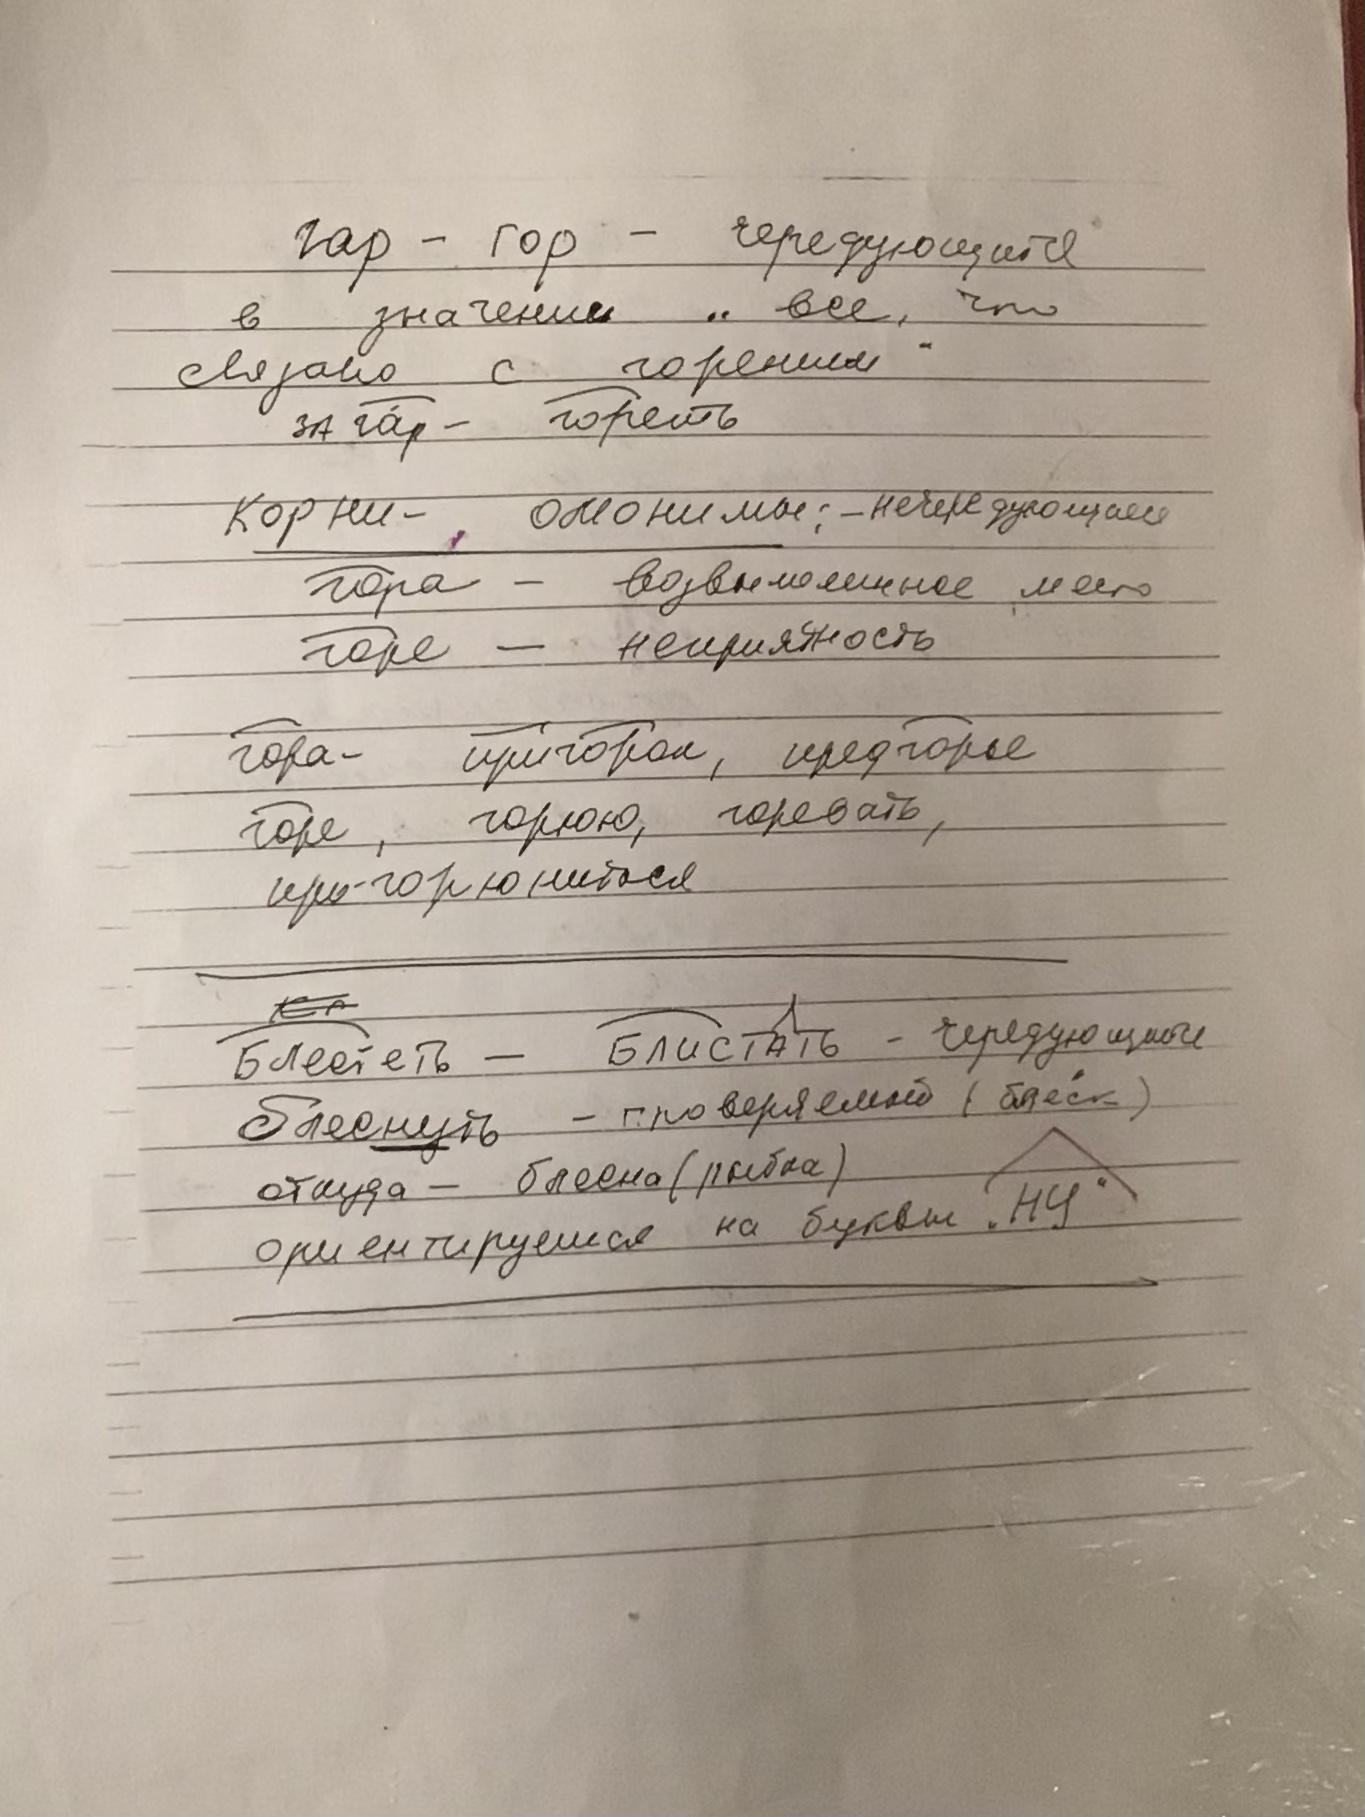 гар - гор - чередующиеся
в значении „все, что
связано с горением“
загар - гореть
Корни - омонимы: - нечередующиеся
гора - возвышенное место
горе - неприятность
гора - пригорок, предгорье
горе, горюю, горевать,
при-горюниться
Блестеть - БЛИСТАТЬ - чередующиеся
блеснуть - проверяемой (блеск)
откуда - блесна (рыбка)
ориентируемся на буквы „НУ“